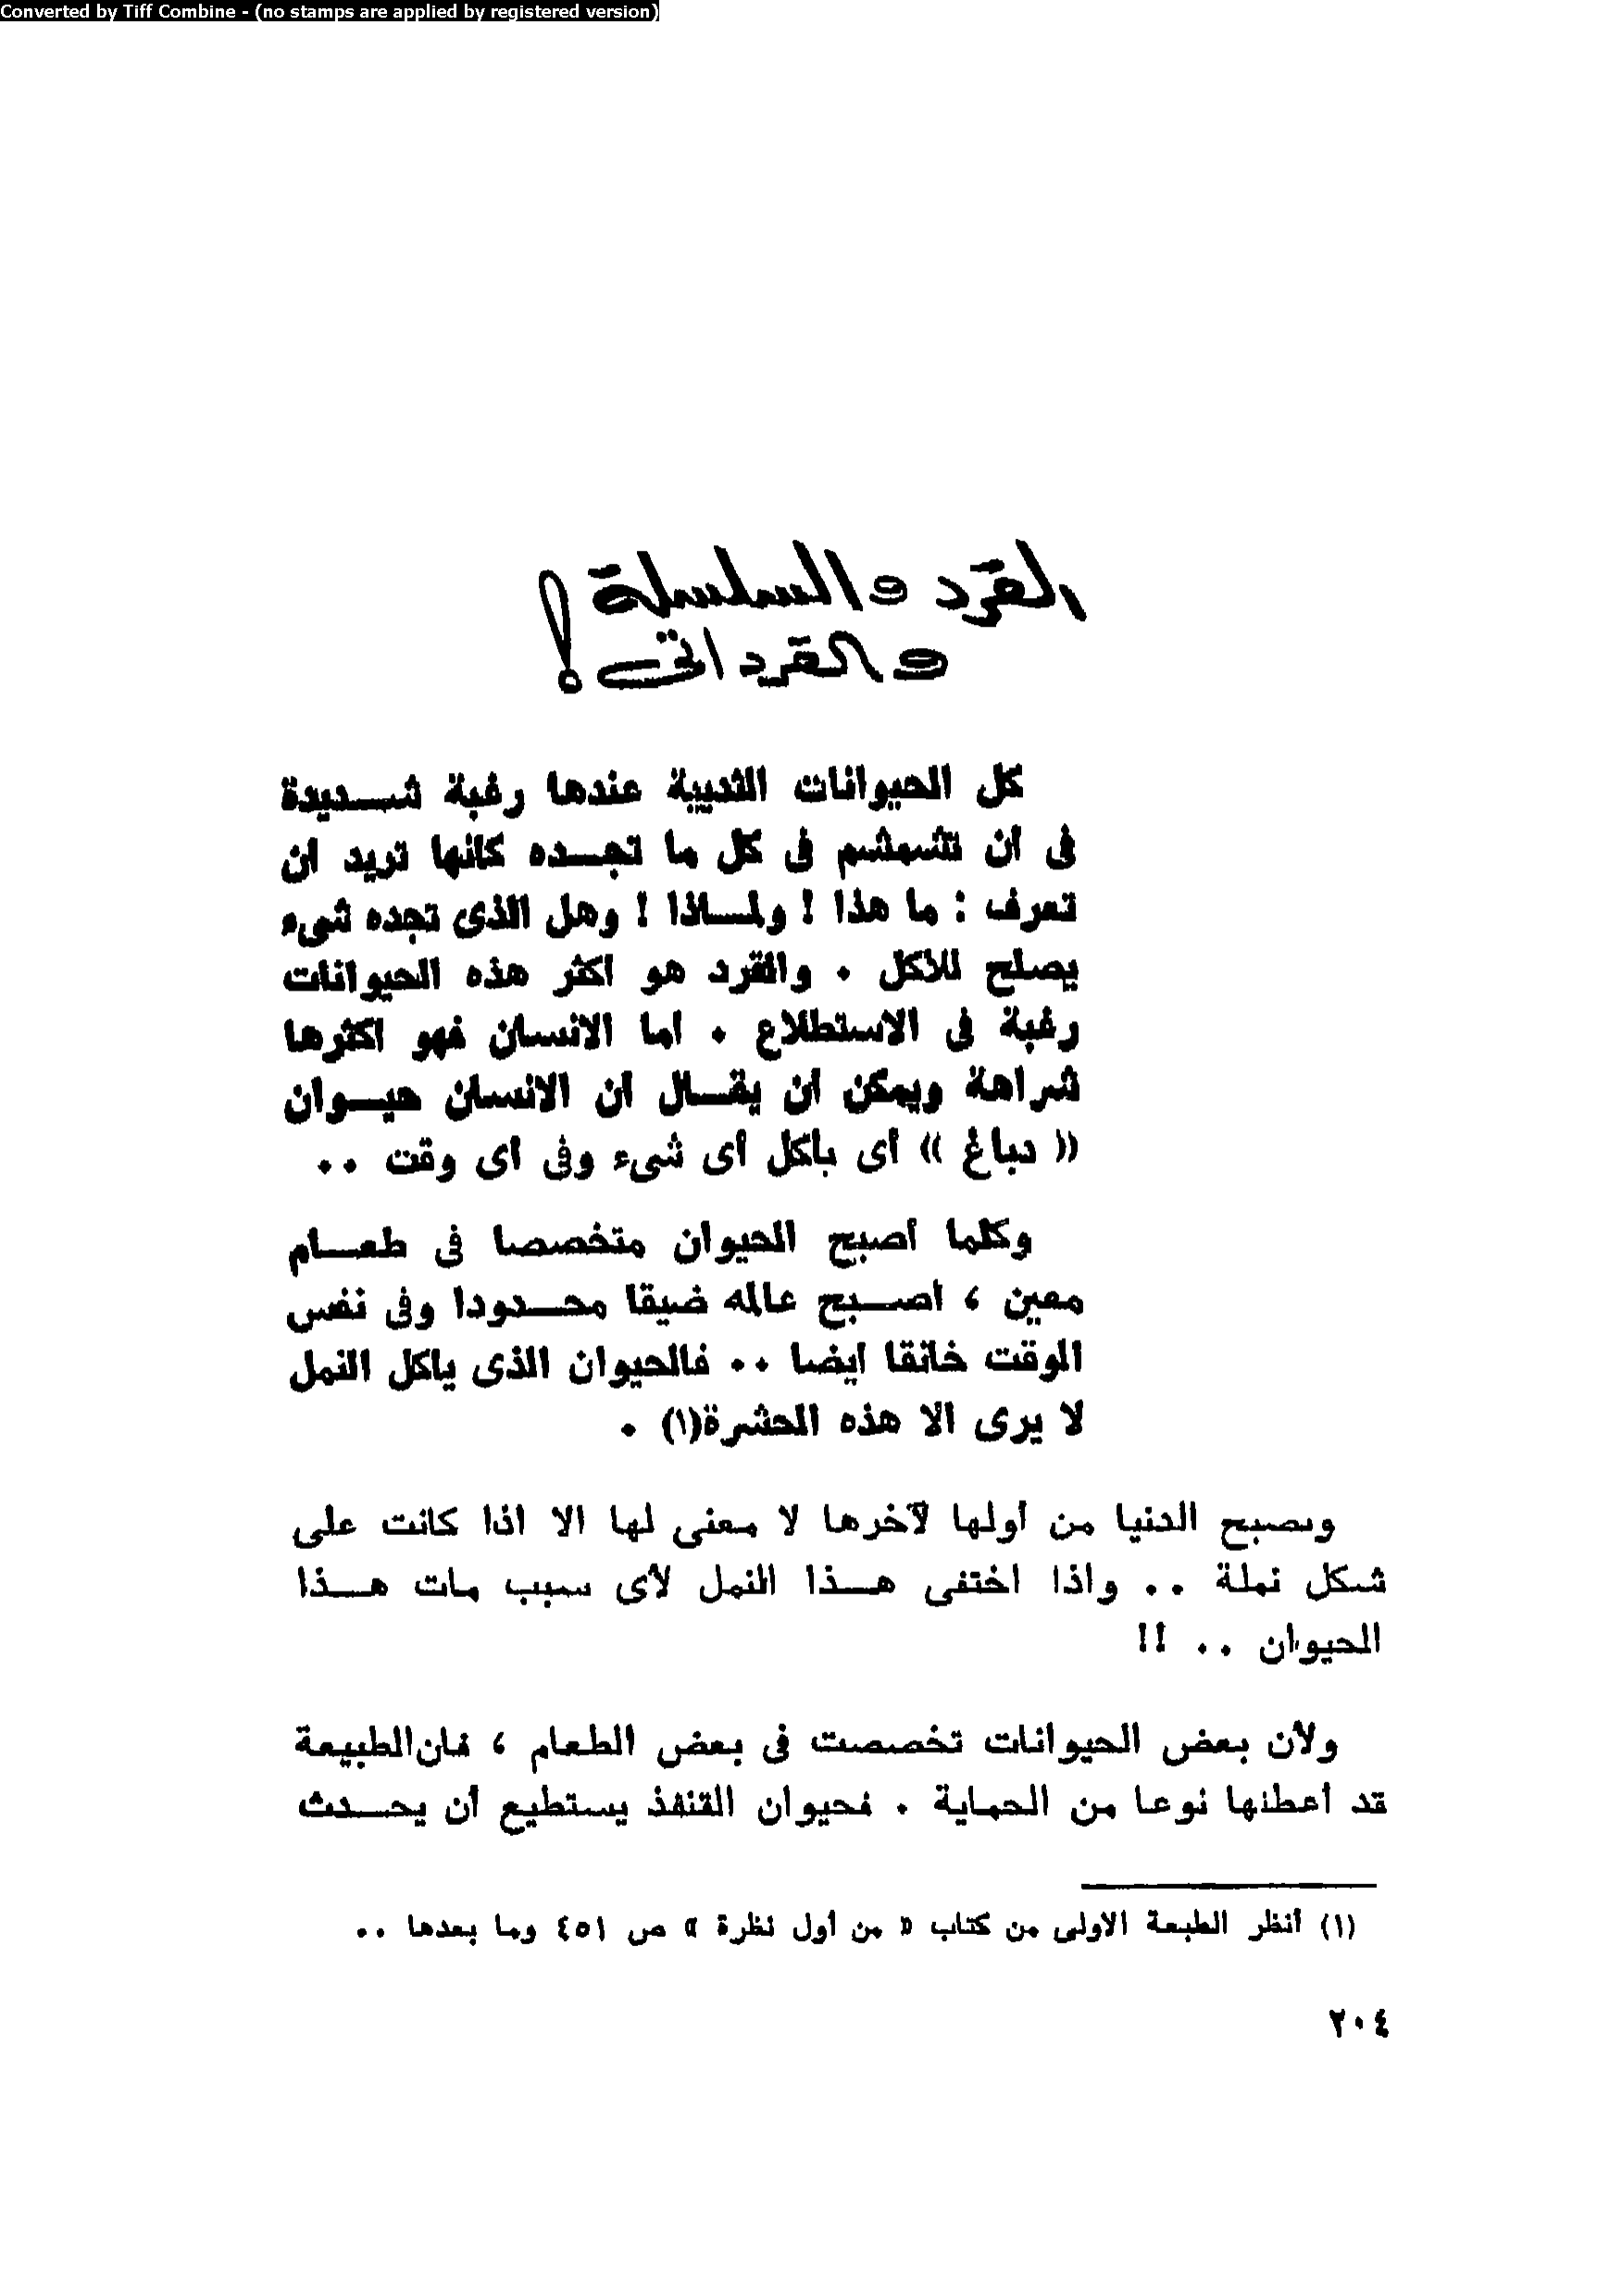 Converted by Tiff Combine - (no stamps are applied by registered version)
القرد والسلسلة
والقرداتى !
كل الحيوانات الثديية عندها رغبة شـــديدة
فى أن تشمشم فى كل ما تجـــده كانها تريد ان
تعرف : ما هذا ! ولمـــاذا ! وهل الذى تجده شىء
يصلح للأكل . والقرد هو اكثر هذه الحيوانات
رغبة فى الاستطلاع . اما الانسان فهو اكثرها
شراهة ويمكن أن يقـــال ان الانسان حيـــوان
« دباغ » أى يأكل أى شىء وفى أى وقت ..
وكلما أصبح الحيوان متخصصا فى طعـــام
معين ، اصـــبح عالمه ضيقا محـــدودا وفى نفس
الوقت خانقا ايضا .. فالحيوان الذى ياكل النمل
لا يرى الا هذه الحشرة(١) .
وتصبح الدنيا من أولها لآخرها لا معنى لها الا اذا كانت على
شكل نملة .. واذا اختفى هـــذا النمل لأى سبب مات هـــذا
الحيوان .. !!
ولأن بعض الحيوانات تخصصت فى بعض الطعام ، فان الطبيعة
قد أعطتها نوعا من الحماية . فحيوان القنفذ يستطيع أن يحـــدث
(١) أنظر الطبعة الاولى من كتاب « من أول نظرة » ص ٤٥١ وما بعدها ..
٢٠٤